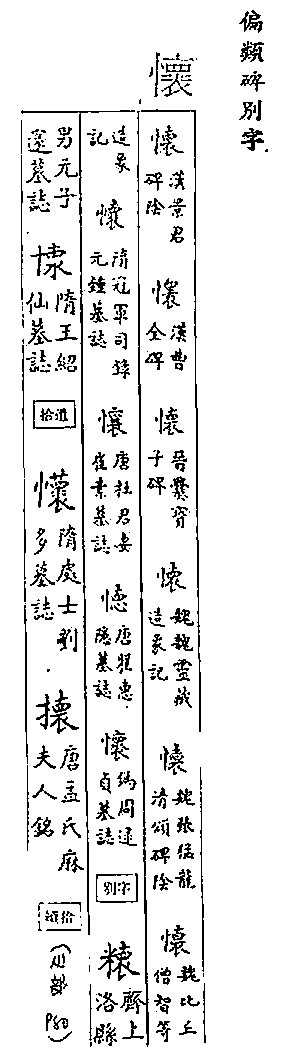 偏類碑別字.
懷
懷 漢景君碑陰 懷 漢曹全碑 懷 晉爨寶子碑 懷 魏魏靈藏造象記 懷 魏張猛龍清頌碑陰 懷 魏比丘僧智等
造象記 懷 隋冠軍司錄元鍾墓誌 懷 唐杜君妻崔素墓誌 懷 唐程惠隱墓誌 懷 偽周逯貞墓誌 別字 𥻆 齊上洛縣
男元子邃墓誌 懷 隋王紹仙墓誌 拾遺 懷 隋處士劉多墓誌 攘 唐孟氏麻夫人銘 續拾 (心部 P80)